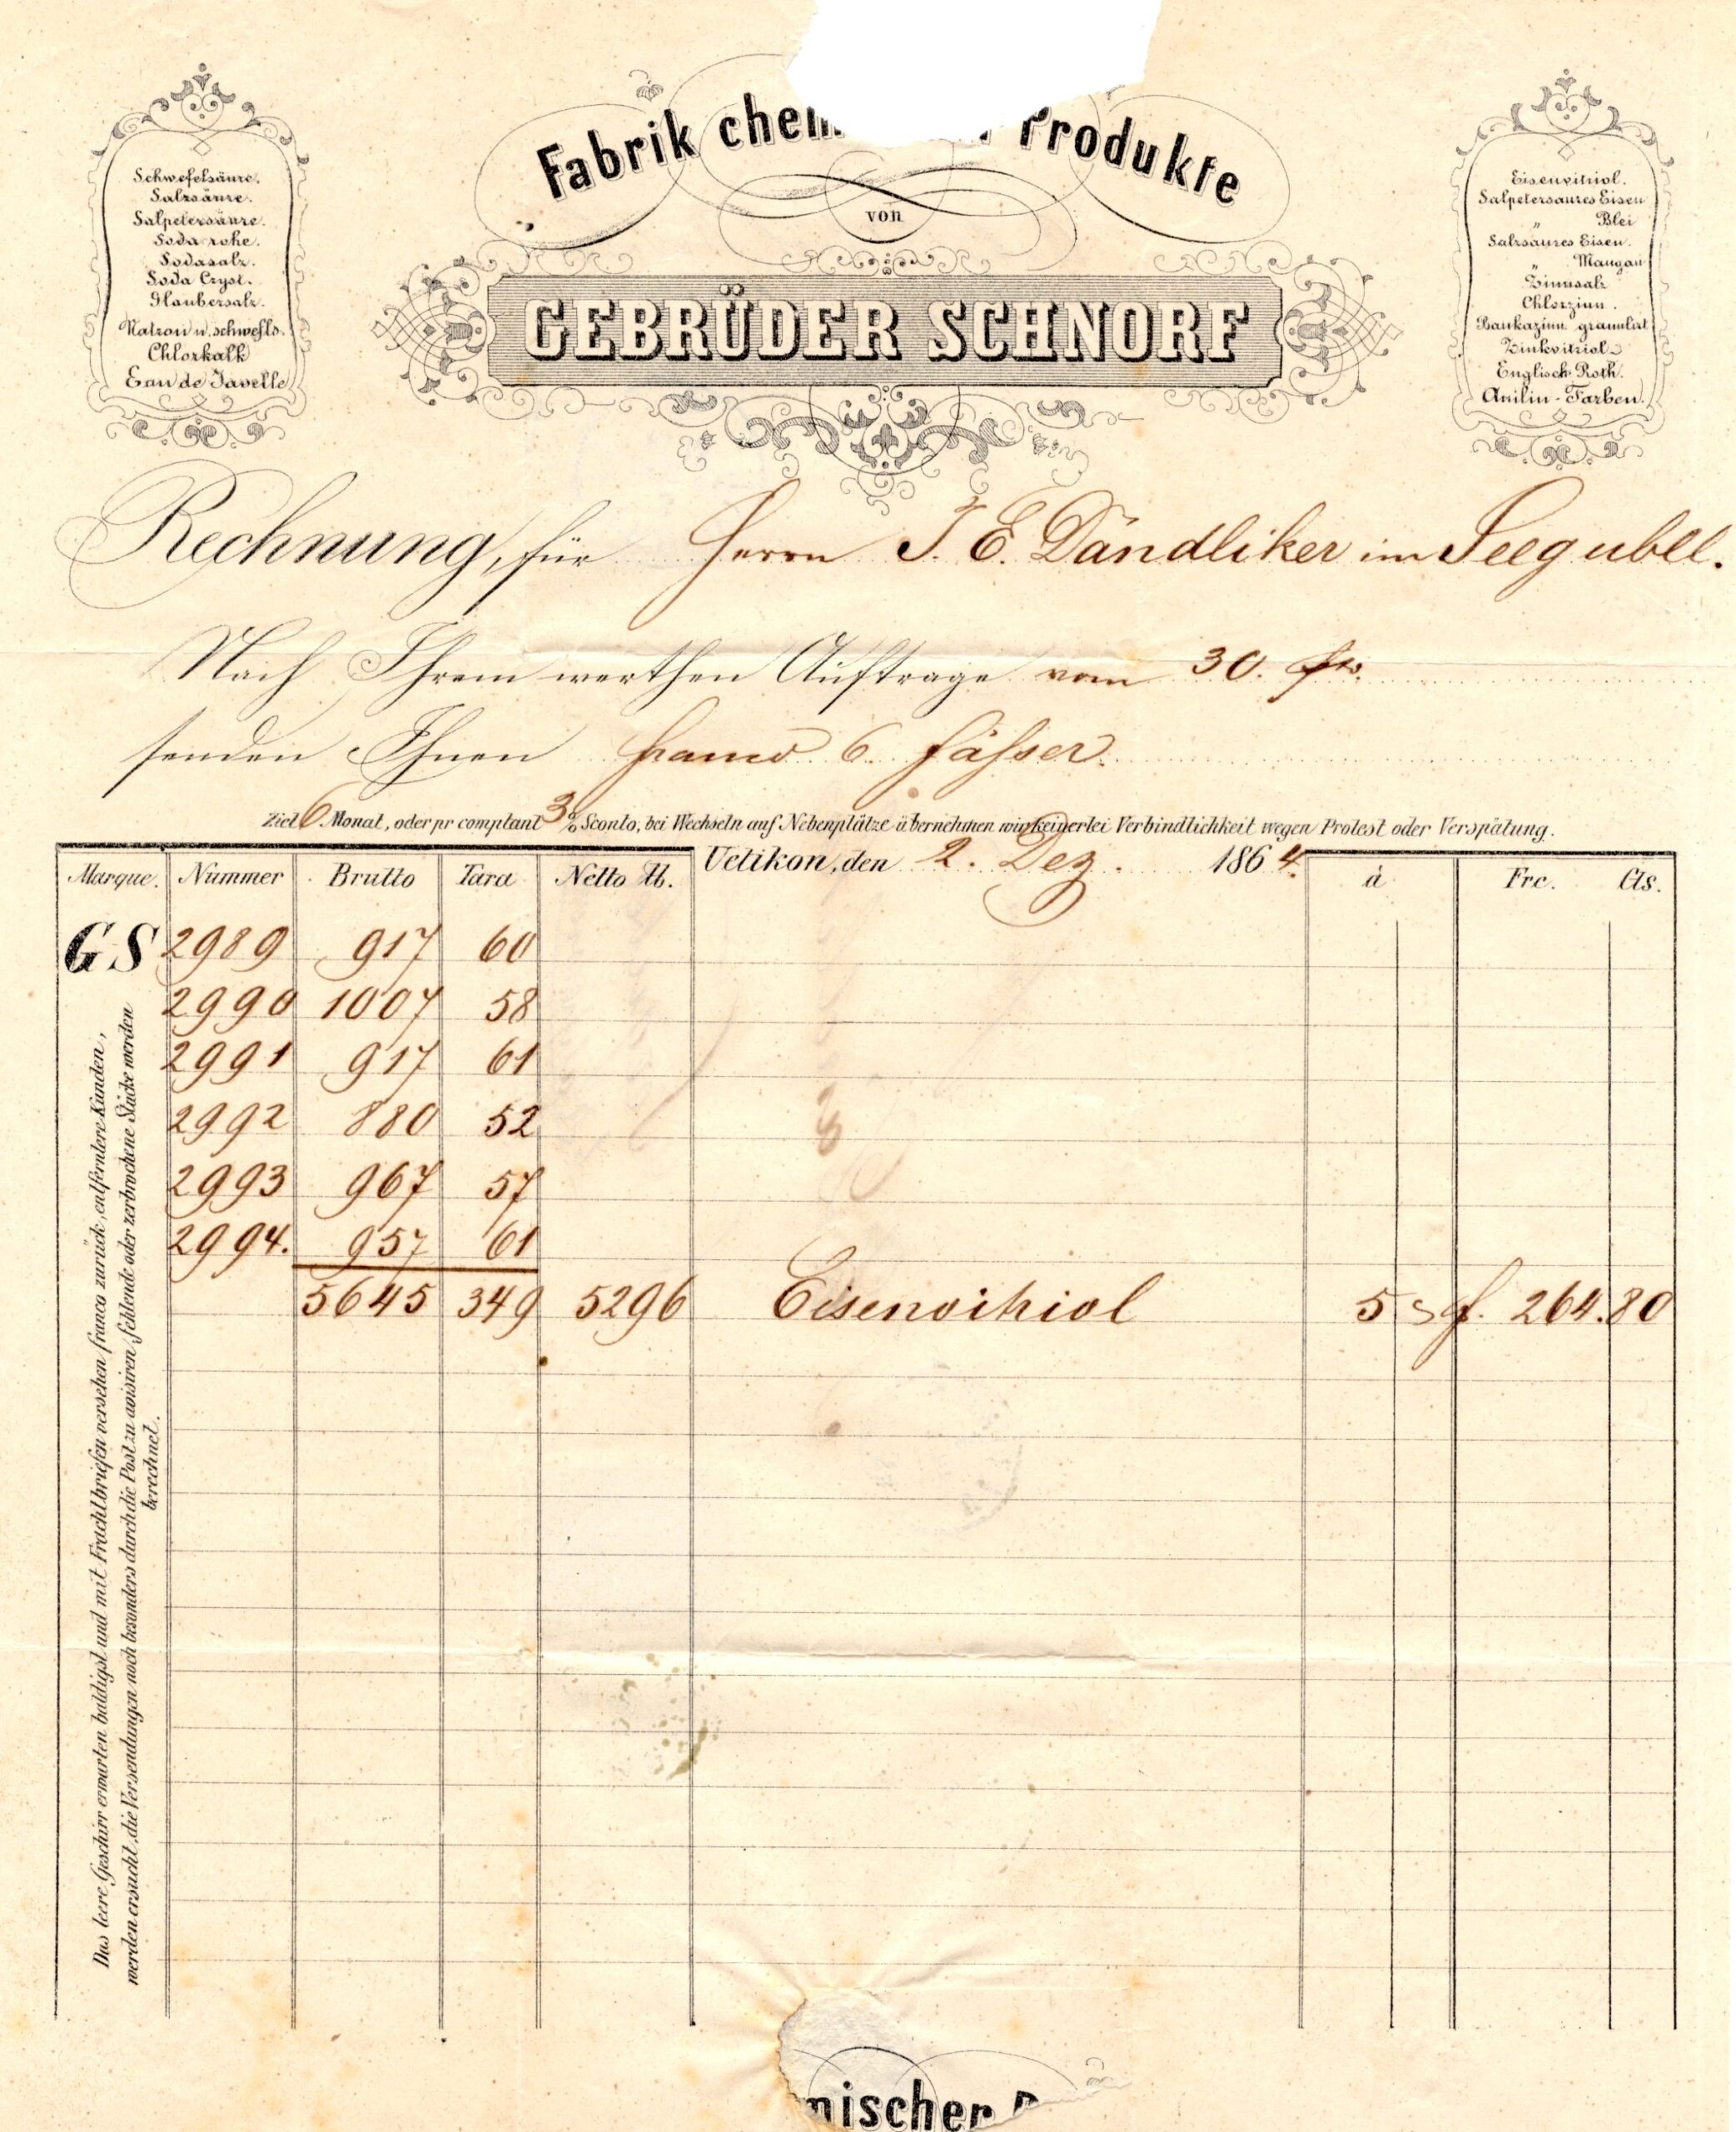 Fabrik chem Produkte
von
GEBRÜDER SCHNORF
Schwefelsäure.
Salzsäure.
Salpetersäure.
Soda rohe.
Sodasalz.
Soda Cryst.
Glaubersalz.
Natron u. schwefls.
Chlorkalk
Eau de Javelle
Eisenvitriol.
Salpetersaures Eisen
" Blei
Salzsaures Eisen.
" Mangan
Zinnsalz
Chlorzinn.
Bankazinn granulirt
Zinkvitriol
Englisch Roth.
Anilin-Farben.
Rechnung, für Herrn J. E. Dändliker im Seegubel.
Nach Ihrem werthen Auftrage vom 30.
senden Ihnen franco 6 Fässer.
Ziel 6 Monat, oder pr comptant 3 % Sconto, bei Wechseln auf Nebenplätze übernehmen wir keinerlei Verbindlichkeit wegen Protest oder Verspätung.
Uetikon, den 2. Dez. 1864.
Marque. Nummer Brutto Tara Netto ℔. à Frc. Cts.
GS 2989 917 60
2990 1007 58
2991 917 61
2992 880 52
2993 967 57
2994. 957 61
5645 349 5296 Eisenvitriol 5 f. 264.80
Das leere Geschirr erwarten baldigst und mit Frachtbriefen versehen franco zurück, entferntere Kunden,
werden ersucht, die Versendungen noch besonders durch die Post zu avisiren, fehlende oder zerbrochene Stücke werden
berechnet.
mischer